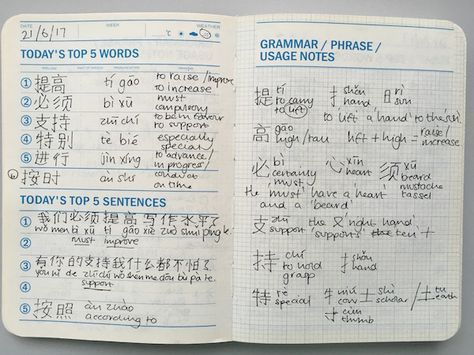 DATE WEEK WEATHER
21/6/17
TODAY'S TOP 5 WORDS
① 提高 tí gāo to raise/improve
to increase
② 必须 bì xū must
compulsory
③ 支持 zhī chí to be in favour
to support
④ 特别 tè bié especially
special
⑤ 进行 jìn xíng to advance/
in progress
按时 àn shí
on time
TODAY'S TOP 5 SENTENCES
① 我们必须提高写作水平了
wǒ men bì xū tí gāo xiě zuò shuǐ píng le
② must improve
③ 有你的支持我什么都不怕了
yǒu nǐ de zhī chí wǒ shén me dōu bù pà le
④ support
⑤ 按照 àn zhào
according to
GRAMMAR / PHRASE /
USAGE NOTES
提 tí to carry to lift 扌 shǒu hand 日 rì sun
to lift a hand to the sun
高 gāo high/tall lift + high = raise/
increase
必 bì certainly must 心 xīn heart 须 xū beard
mustache
He must have a heart tassel
and a 'beard'
支 zhī the 又 right hand
support 'supports' the ten 十
持 chí to hold grasp 扌 shǒu hand
特 tè special 牛 niú cow 士 shì scholar / 土 tǔ earth
寸 cùn thumb